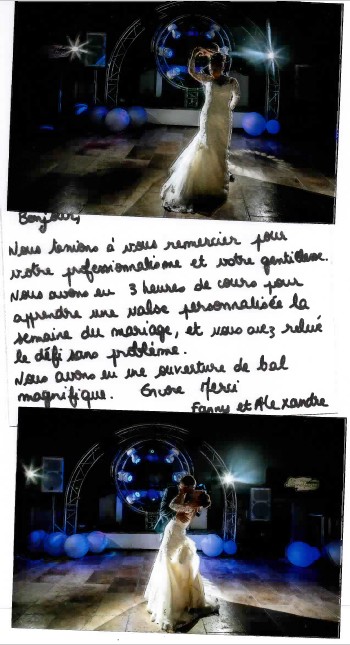 Bonjour,
Nous tenions à vous remercier pour
votre professionnalisme et votre gentillesse.
Nous avons eu 3 heures de cours pour
apprendre une valse personnalisée la
semaine du mariage, et vous avez relevé
le défi sans problème.
Nous avons eu une ouverture de bal
magnifique. Encore Merci
Fanny et Alexandre